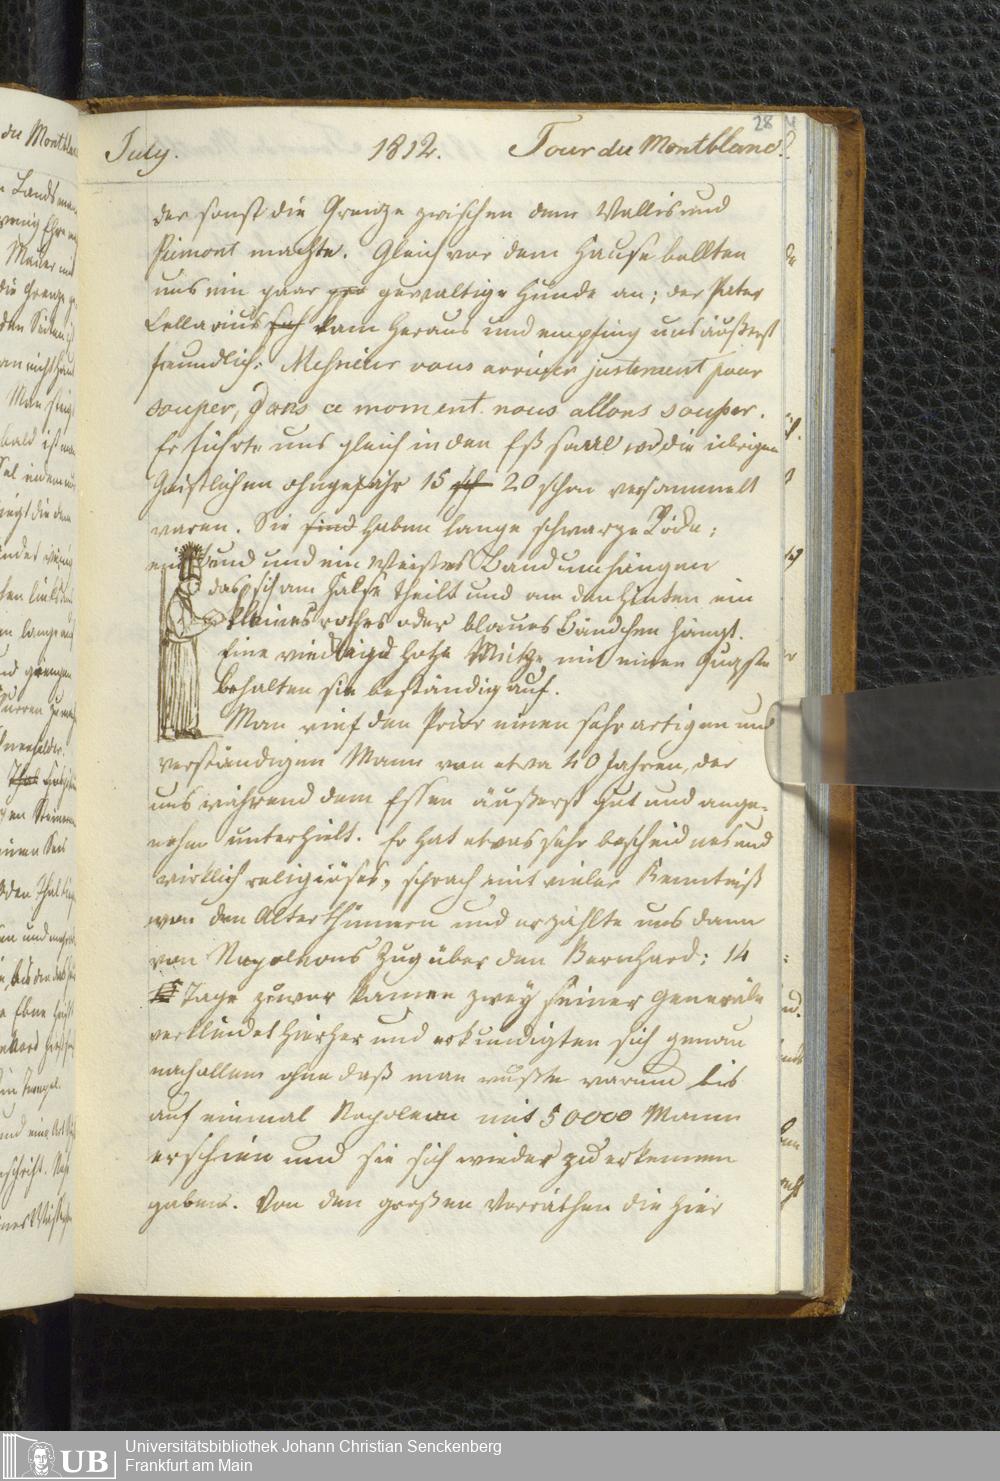 28
July. 1812. Tour du Montblanc.
der sonst die Grenze zwischen dem Wallis und
Piemont machte. Gleich vor dem Hause bellten
uns ein paar gewaltige Hunde an; der Pater
Cellarius kam heraus und empfing uns äußerst
freundlich: Messieurs vous arrivez justement pour
souper, dans ce moment nous allons souper.
Er führte uns gleich in den Eßsaal wo die übrigen
Geistlichen ohngefähr 15 20 schon versammelt
waren. Sie haben lange schwarze Röcke;
und ein weißes Band umhängen
das sich am Halse theilt und an den hinten ein
kleines rothes oder blaues Bändchen hängt.
Eine viereckige hohe Mütze mit einer Quaste
behalten sie beständig auf.
Man rief den Prior einen sehr artigen und
verständigen Mann von etwa 40 Jahren, der
uns während dem Essen äußerst gut und ange-
nehm unterhielt. Er hat etwas sehr bescheidnes und
wirklich religiöses, sprach mit vieler Kenntniß
von den Alterthümern und erzählte uns dann
von Napoleons Zug über den Bernhard: 14
Tage zuvor kamen zwey seiner Generäle
verkleidet hierher und erkundigten sich genau
nach allem ohne daß man wußte warum, bis
auf einmal Napoleon mit 50000 Mann
erschien und sie sich wieder zu erkennen
gaben. Von den großen Vorräthen die hier
UB
Universitätsbibliothek Johann Christian Senckenberg
Frankfurt am Main